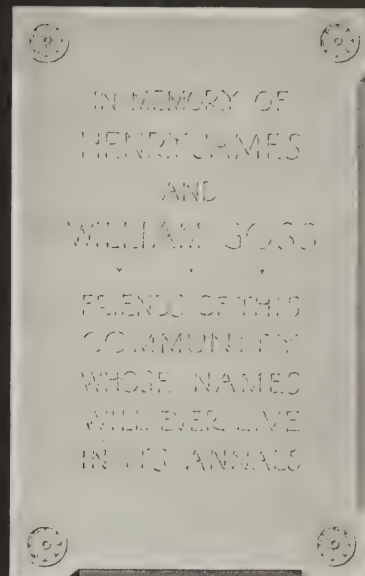 IN MEMORY OF
HENRY JAMES
AND
WILLIAM GOSS
FRIENDS OF THIS
COMMUNITY
WHOSE NAMES
WILL EVER LIVE
IN ITS ANNALS